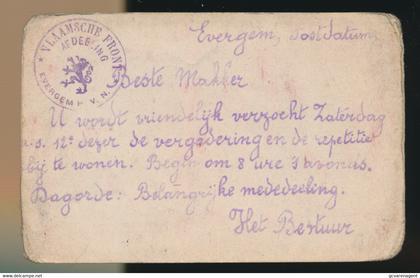 VLAAMSCHE FRONT
AFDEELING
EVERGEM V.N.
Evergem, Postdatum
Beste Makker
U wordt vriendelijk verzocht Zaterdag
a.s. 12e dezer de vergadering en de repetitie
bij te wonen. Begin om 8 ure 's avonds.
Dagorde: Belangrijke mededeeling.
Het Bestuur